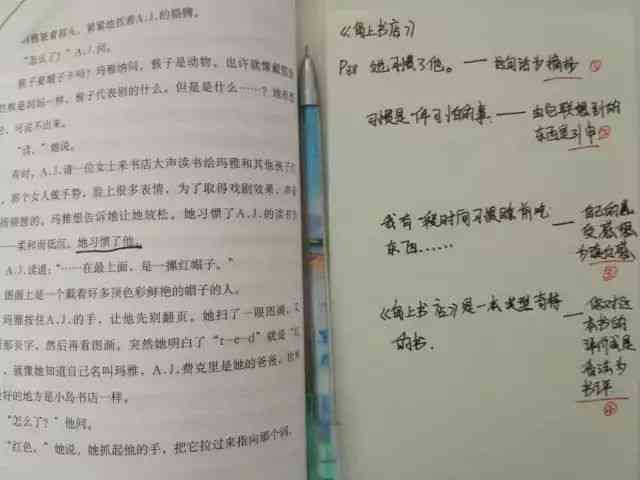 紧紧地抓着A.J.的胳膊。
“怎么了？”A.J.问。
猴子要帽子干吗？玛雅纳闷，猴子是动物。也许就像戴假发
一样，猴子代表别的什么。但是是什么……？她在想
，可说不出来。
“读，”她说。
有时，A.J.请一位女士来书店大声读书给玛雅和其他孩子们
那个女人做手势，脸上很多表情，为了取得戏剧效果，声音
玛雅想告诉她让她放松。她习惯了A.J.的读书方
——柔和而低沉。她习惯了他。
A.J.读道：“……在最上面，是一摞红帽子。”
图画上是一个戴着好多顶色彩鲜艳的帽子的人。
玛雅按住A.J.的手，让他先别翻页。她扫了一眼图画，又
那页字，然后再看图画。突然她明白了“r—e—d”就是“红
，就像她知道自己名叫玛雅，A.J.费克里是她的爸爸，世界
好的地方是小岛书店一样。
“怎么了？”他问。
“红色，”她说，她抓起他的手，把它拉过来指向那个词。
《岛上书店》
她习惯了他。——这句话为摘抄 ①
习惯是一件可怕的事——由它联想到的
东西是引申 ②
我有一段时间习惯睡前吃——自己的感
东西…… 受感想
为读后感
③
《岛上书店》是一本类型奇特——你对这
的书。 本书的
评价或是
看法为
书评
④